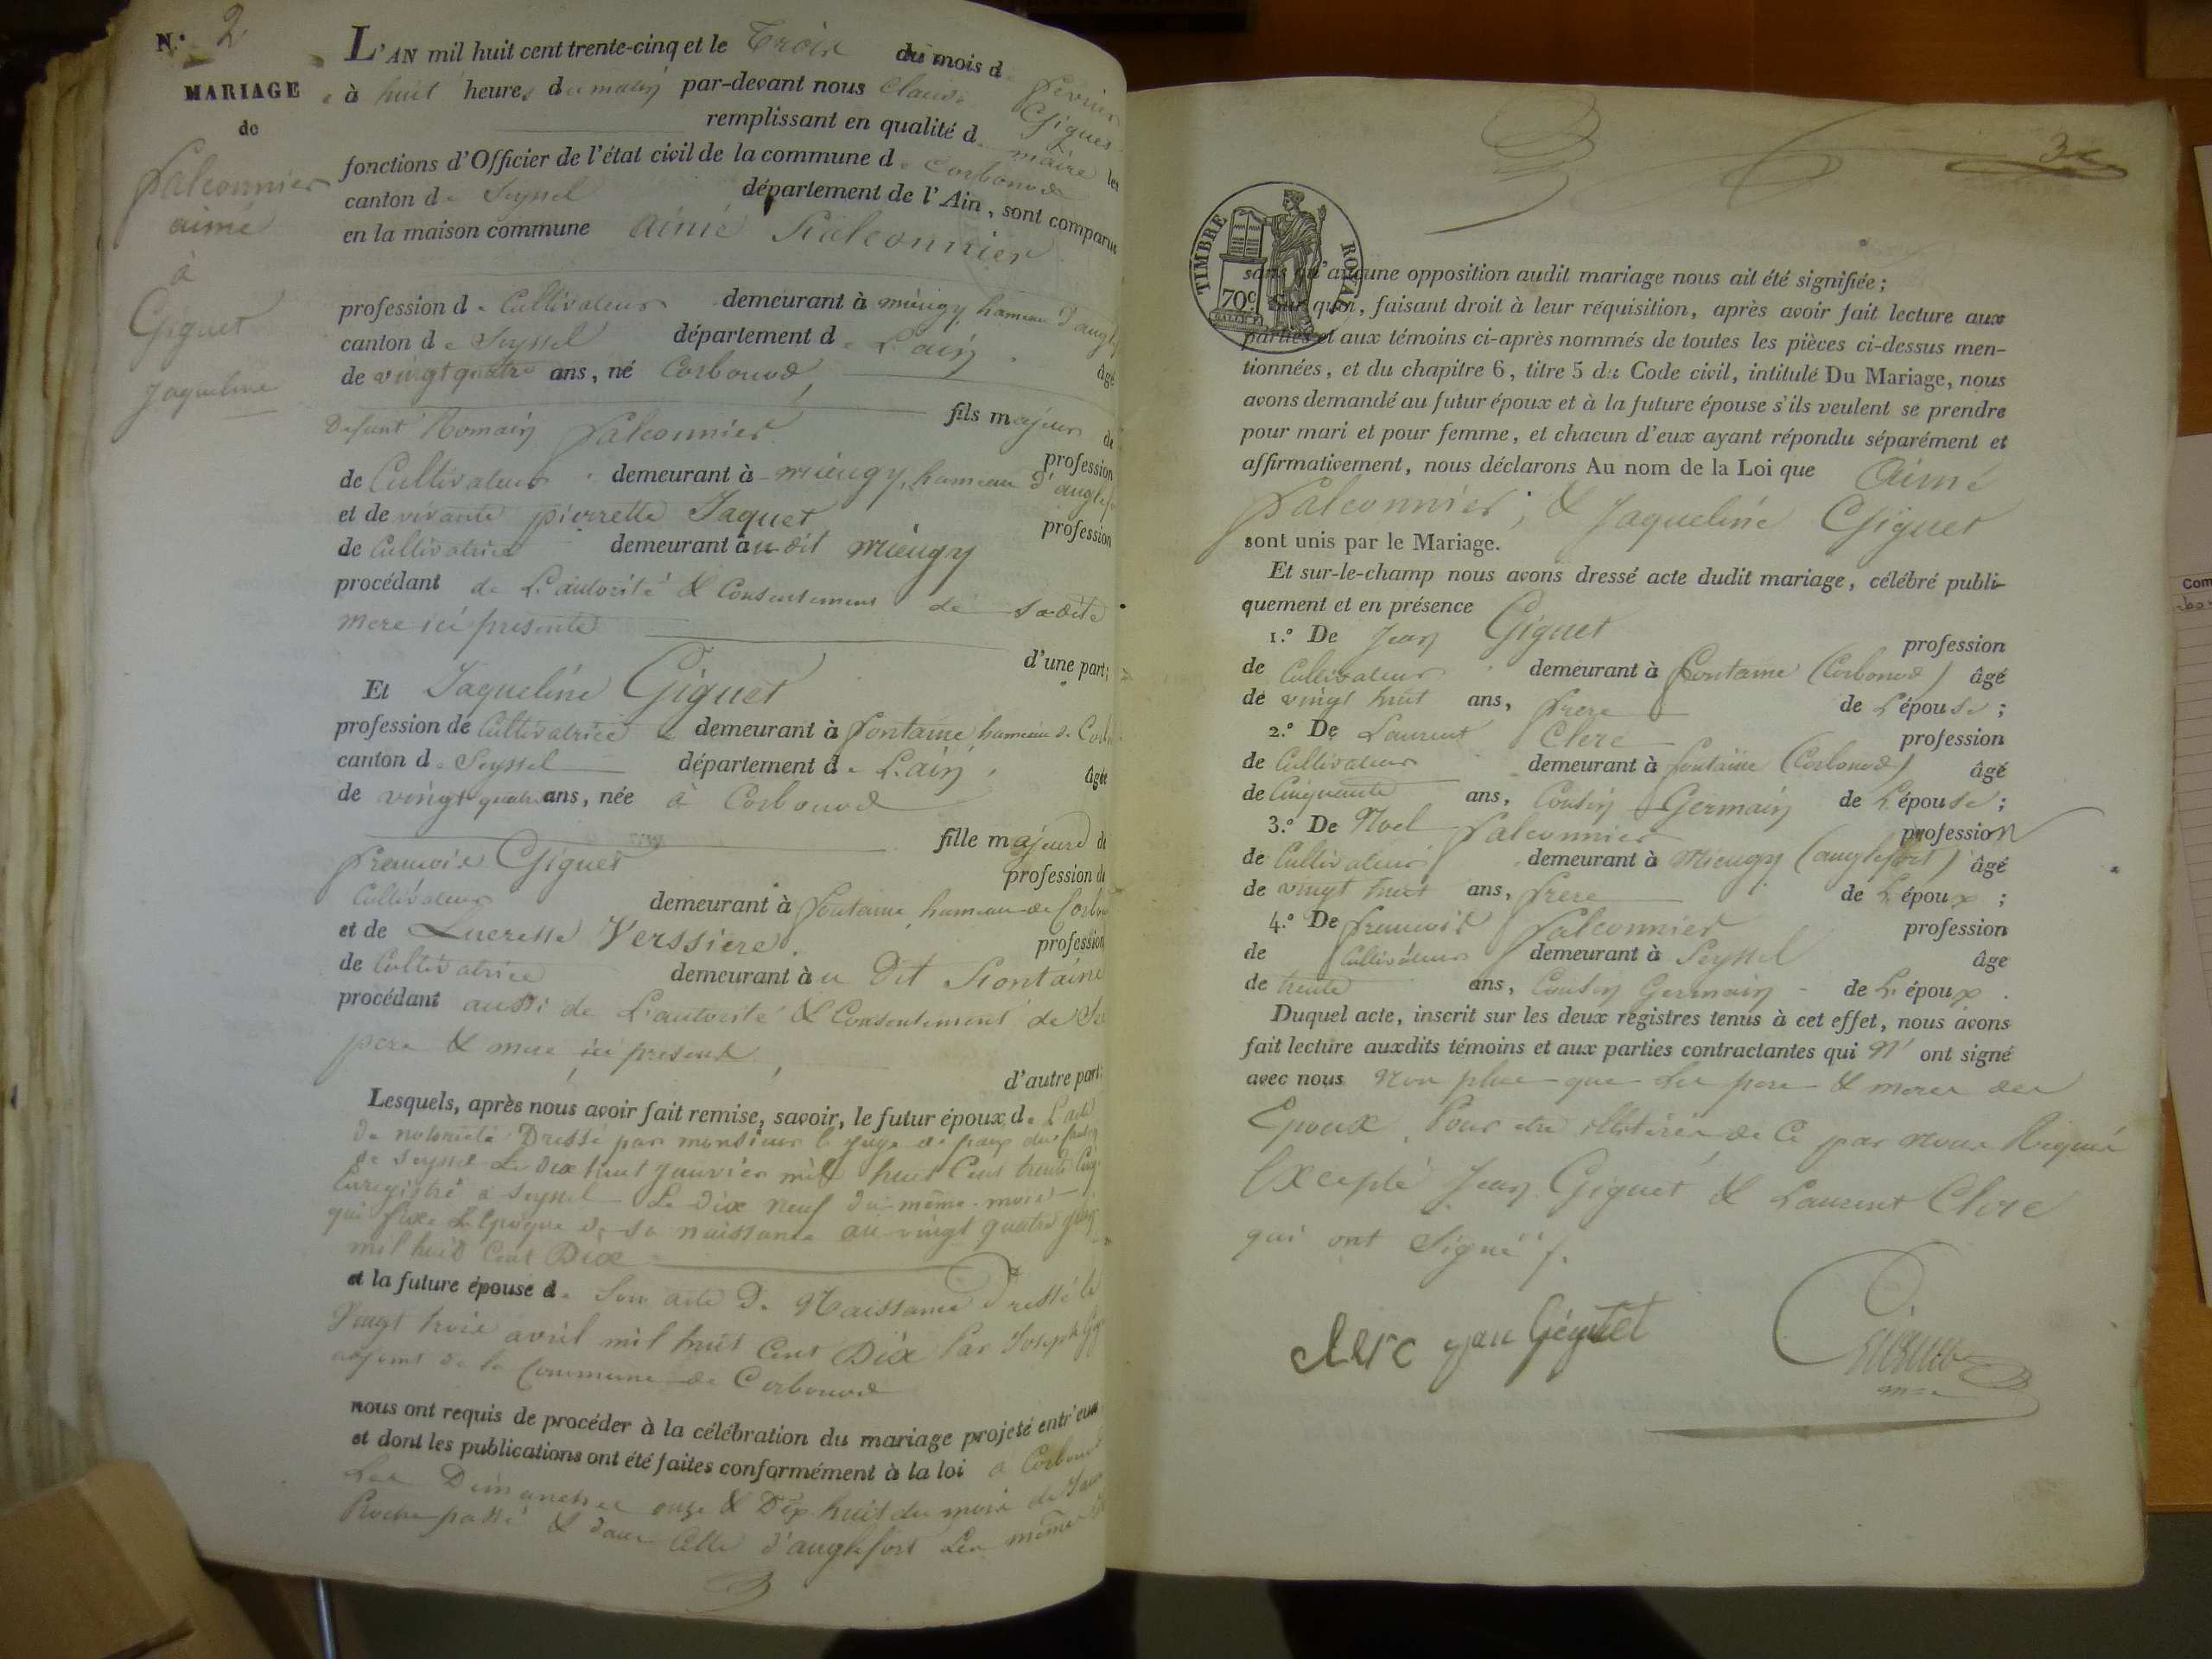 N.° 2
MARIAGE
de
falconnier
aimé
à
Giguet
jaqueline
L'AN mil huit cent trente-cinq et le Trois du mois de fevrier
à huit heures du matin par-devant nous Claude Giguet
remplissant en qualité de maire les
fonctions d'Officier de l'état civil de la commune de Corbonod
canton de Seyssel département de l'Ain, sont comparus
en la maison commune aimé Falconnier
profession de Cultivateur demeurant à mieugy hameau d'angle
canton de Seyssel département de L'ain âgé
de vingt quatre ans, né Corbonod
fils majeur de
defunt Romain falconnier profession
de Cultivateur demeurant à mieugy, hameau d'anglef
et de vivante pierrette Jaquet profession
de Cultivatrice demeurant à u dit mieugy
procédant de L'autorité & Consentement de sadite
mere ici presente
d'une part;
Et Jaqueline Giguet
profession de Cultivatrice demeurant à fontaine hameau de Corb
canton de Seyssel département de L'ain, âgée
de vingt quatre ans, née à Corbonod
fille majeure de
francois Giguet profession de
Cultivateur demeurant à fontaine hameau de Corbon
et de Lucresse Verssiere. profession
de Cultivatrice demeurant à u Dit Fontaine
procédant aussi de L'autorité & Consentement de Se
pere & mere ici présent,
d'autre part;
Lesquels, après nous avoir fait remise, savoir, le futur époux de L'acte
de notorieté Dressé par monsieur le juge de paix du
de Seyssel Le dix huit janvier mil huit Cent trente Cinq
Enregistré a Seyssel Le dix neuf du même mois
qui fixe L'Epoque de sa naissance au vingt quatre juin
mil huit Cent Dix
et la future épouse de Son acte de Naissance dressé le
Vingt trois avril mil huit Cent Dix Par Joseph
adjoint de la Commune de Corbonod
nous ont requis de procéder à la célébration du mariage projeté entr'eux
et dont les publications ont été faites conformément à la loi à Corbonod
Les Dimanches onze & Dix huit du mois de Jan
Proche passé & dans Celle d'anglefort Les mêmes
3e
TIMBRE ROYAL
70c
sans qu'aucune opposition audit mariage nous ait été signifiée;
Sur quoi, faisant droit à leur réquisition, après avoir fait lecture aux
parties et aux témoins ci-après nommés de toutes les pièces ci-dessus men-
tionnées, et du chapitre 6, titre 5 du Code civil, intitulé Du Mariage, nous
avons demandé au futur époux et à la future épouse s'ils veulent se prendre
pour mari et pour femme, et chacun d'eux ayant répondu séparément et
affirmativement, nous déclarons Au nom de la Loi que Aimé
falconnier, & Jaqueline Giguet
sont unis par le Mariage.
Et sur-le-champ nous avons dressé acte dudit mariage, célébré publi-
quement et en présence
1.° De Jean Giguet profession
de Cultivateur demeurant à fontaine (Corbonod) âgé
de vingt huit ans, frere de L'épouse;
2.° De Laurent Clerc profession
de Cultivateur demeurant à fontaine (Corbonod) âgé
de Cinquante ans, Cousin Germain de L'épouse;
3.° De Noel falconnier profession
de Cultivateur demeurant à Mieugy (anglefort) âgé
de vingt huit ans, frere de L'époux;
4.° De francois falconnier profession
de Cultivateur demeurant à Seyssel âge
de trente ans, Cousin Germain de L'époux.
Duquel acte, inscrit sur les deux registres tenus à cet effet, nous avons
fait lecture auxdits témoins et aux parties contractantes qui N' ont signé
avec nous Non plus que Les pere & mere des
Epoux, Pour etre illitérés de Ce par Nous Requis
Excepté Jean Giguet & Laurent Clerc
qui ont Signé
clerc jan Géguet
Giguet